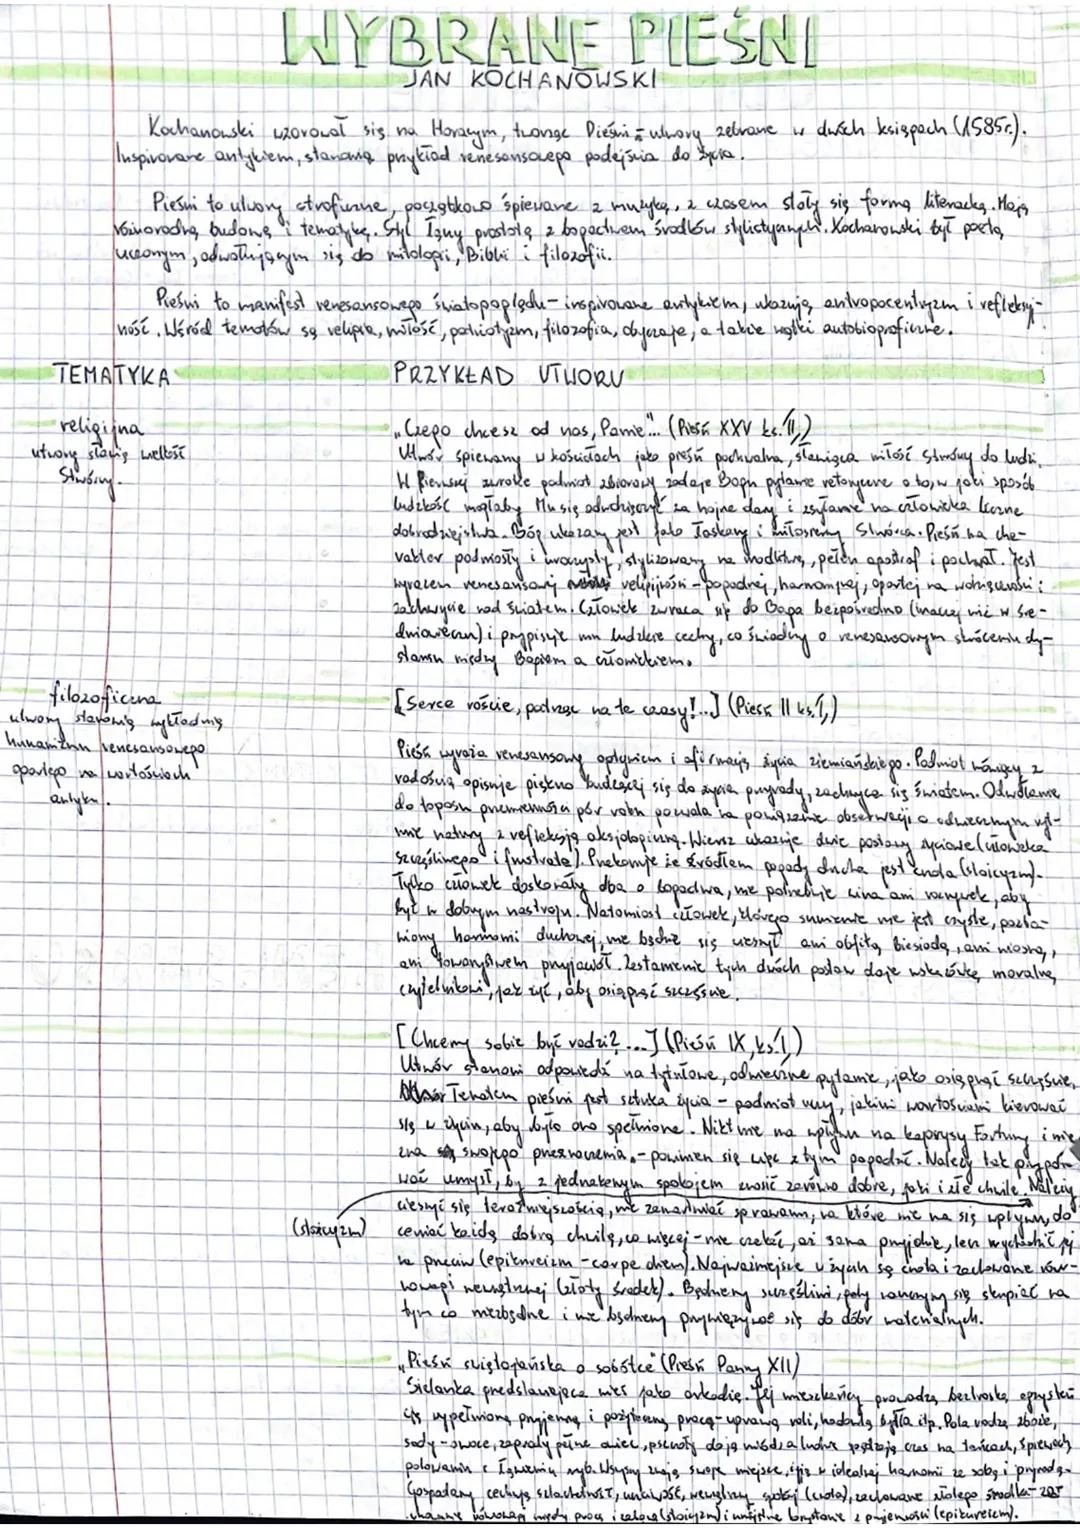 WYBRANE PIEŚNI
JAN KOCHANOWSKI
Kochanowski wzorował się na Horacym, tworząc Pieśni - utwory zebrane w dwóch księgach (1585r.).
Inspirowane antykiem, stanowią przykład renesansowego podejścia do życia.
Pieśni to utwory stroficzne, początkowo śpiewane z muzyką, z czasem stały się formą literacką. Mają
różnorodną budowę i tematykę. Styl łączy prostotę z bogactwem środków stylistycznych. Kochanowski był poetą
uczonym, odwołującym się do mitologii, Biblii i filozofii.
Pieśni to manifest renesansowego światopoglądu - inspirowane antykiem, ukazują antropocentryzm i refleksyj-
ność. Wśród tematów są religia, miłość, patriotyzm, filozofia, obyczaje, a także wątki autobiograficzne.
TEMATYKA
PRZYKŁAD UTWORU
religijna
utwory sławią wielkość
Stwórcy.
„Czego chcesz od nas, Panie"... (Pieśń XXV ks. II,)
Utwór śpiewany w kościołach jako pieśń pochwalna, sławiąca miłość Stwórcy do ludzi.
W pierwszej zwrotce podmiot zbiorowy zadaje Bogu pytanie retoryczne o to, w jaki sposób
ludzkość mogłaby Mu się odwdzięczyć za hojne dary i zsyłane na człowieka liczne
dobrodziejstwa. Bóg ukazany jest jako łaskawy i miłosierny Stwórca. Pieśń ma cha-
rakter podniosły i uroczysty, stylizowany na modlitwę, pełen apostrof i pochwał. Jest
wyrazem renesansowej religijności - pogodnej, harmonijnej, opartej na wdzięczności i
zachwycie nad światem. Człowiek zwraca się do Boga bezpośrednio (inaczej niż w śre-
dniowieczu) i przypisuje mu ludzkie cechy, co świadczy o renesansowym skróceniu dy-
stansu między Bogiem a człowiekiem.
filozoficzna
utwory stanowią wykładnię
humanizmu renesansowego
opartego na wartościach
antyku.
[Serce roście, patrząc na te czasy!...] (Pieśń II ks. I,)
Pieśń wyraża renesansowy optymizm i afirmację życia ziemiańskiego. Podmiot mówiący z
radością opisuje piękno budzącej się do życia przyrody, zachwyca się światem. Odwołanie
do toposu przemienności pór roku pozwala na powiązanie obserwacji o odwiecznym ryt-
mie natury z refleksją aksjologiczną. Wiersz ukazuje dwie postawy życiowe (człowieka
szczęśliwego i frustrata). Przekonuje że źródłem pogody ducha jest cnota (stoicyzm).
Tylko człowiek doskonały dba o bogactwa, nie potrzebuje wina ani rozrywek, aby
być w dobrym nastroju. Natomiast człowiek, którego sumienie nie jest czyste, pozba-
wiony harmonii duchowej, nie będzie się cieszył ani obfitą biesiadą, ani wiosną,
ani towarzystwem przyjaciół. Zestawienie tych dwóch postaw daje wskazówkę moralną
czytelnikowi, jak żyć, aby osiągnąć szczęście.
[Chcemy sobie być radzi?...] (Pieśń IX, ks. I,)
Utwór stanowi odpowiedź na tytułowe, odwieczne pytanie, jako osiągnąć szczęście.
Tematem pieśni jest sztuka życia - podmiot uczy, jakimi wartościami kierować
się w życiu, aby było ono spełnione. Nikt nie ma wpływu na kaprysy Fortuny i nie
zna swojego przeznaczenia - powinien się więc z tym pogodzić. Należy tak przygoto-
wać umysł, by z jednakowym spokojem znosić zarówno dobre, jak i złe chwile. Należy
cieszyć się teraźniejszością, nie zamartwiać sprawami, na które nie ma się wpływu, do
(stoicyzm)
ceniać każdą dobrą chwilę, co więcej - nie czekać, aż sama przyjdzie, lecz wychodzić jej
na przeciw (epikureizm - carpe diem). Najważniejsze w życiu są cnota i zachowanie rów-
nowagi wewnętrznej (złoty środek). Będziemy szczęśliwi, gdy zaczniemy się skupiać na
tym co niezbędne i nie będziemy przywiązywać się do dóbr materialnych.
„Pieśń świętojańska o sobótce" (Pieśń Panny XII)
Sielanka przedstawiająca wieś jako arkadię. Jej mieszkańcy prowadzą beztroską egzysten
cję wypełnioną przyjemną i pożyteczną pracą - uprawą roli, hodowlą bydła itp. Pola rodzą zboże,
sady - owoce, zagrody pełne owiec, pszczoły dają miód, a ludzie spędzają czas na tańcach, śpiewach
polowaniu i łowieniu ryb. Wszyscy znają swoje miejsce, żyją w idealnej harmonii ze sobą i przyrodą.
Gospodarzy cechują szlachetność, uczciwość, wewnętrzny spokój (cnota), zachowanie złotego środka - zar
chowanie równowagi między pracą i zabawą (stoicyzm) i umiejętne korzystanie z przyjemności (epikureizm).